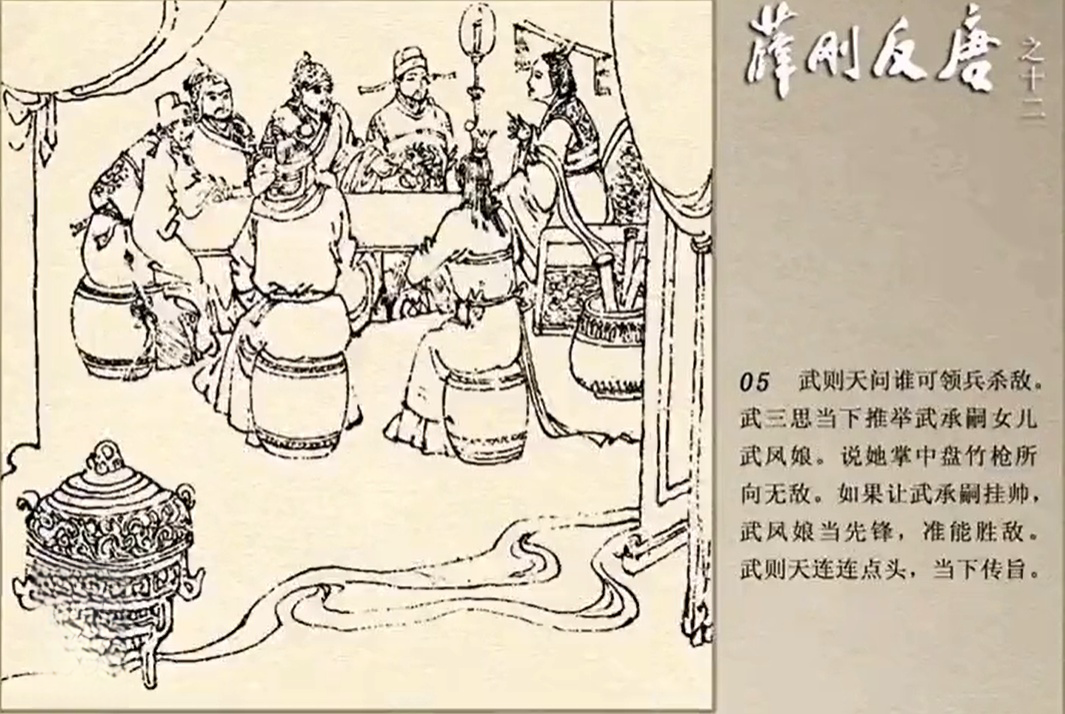 薛刚反唐
之十二
05 武则天问谁可领兵杀敌。
武三思当下推举武承嗣女儿
武凤娘。说她掌中盘竹枪所
向无敌。如果让武承嗣挂帅，
武凤娘当先锋，准能胜敌。
武则天连连点头，当下传旨。